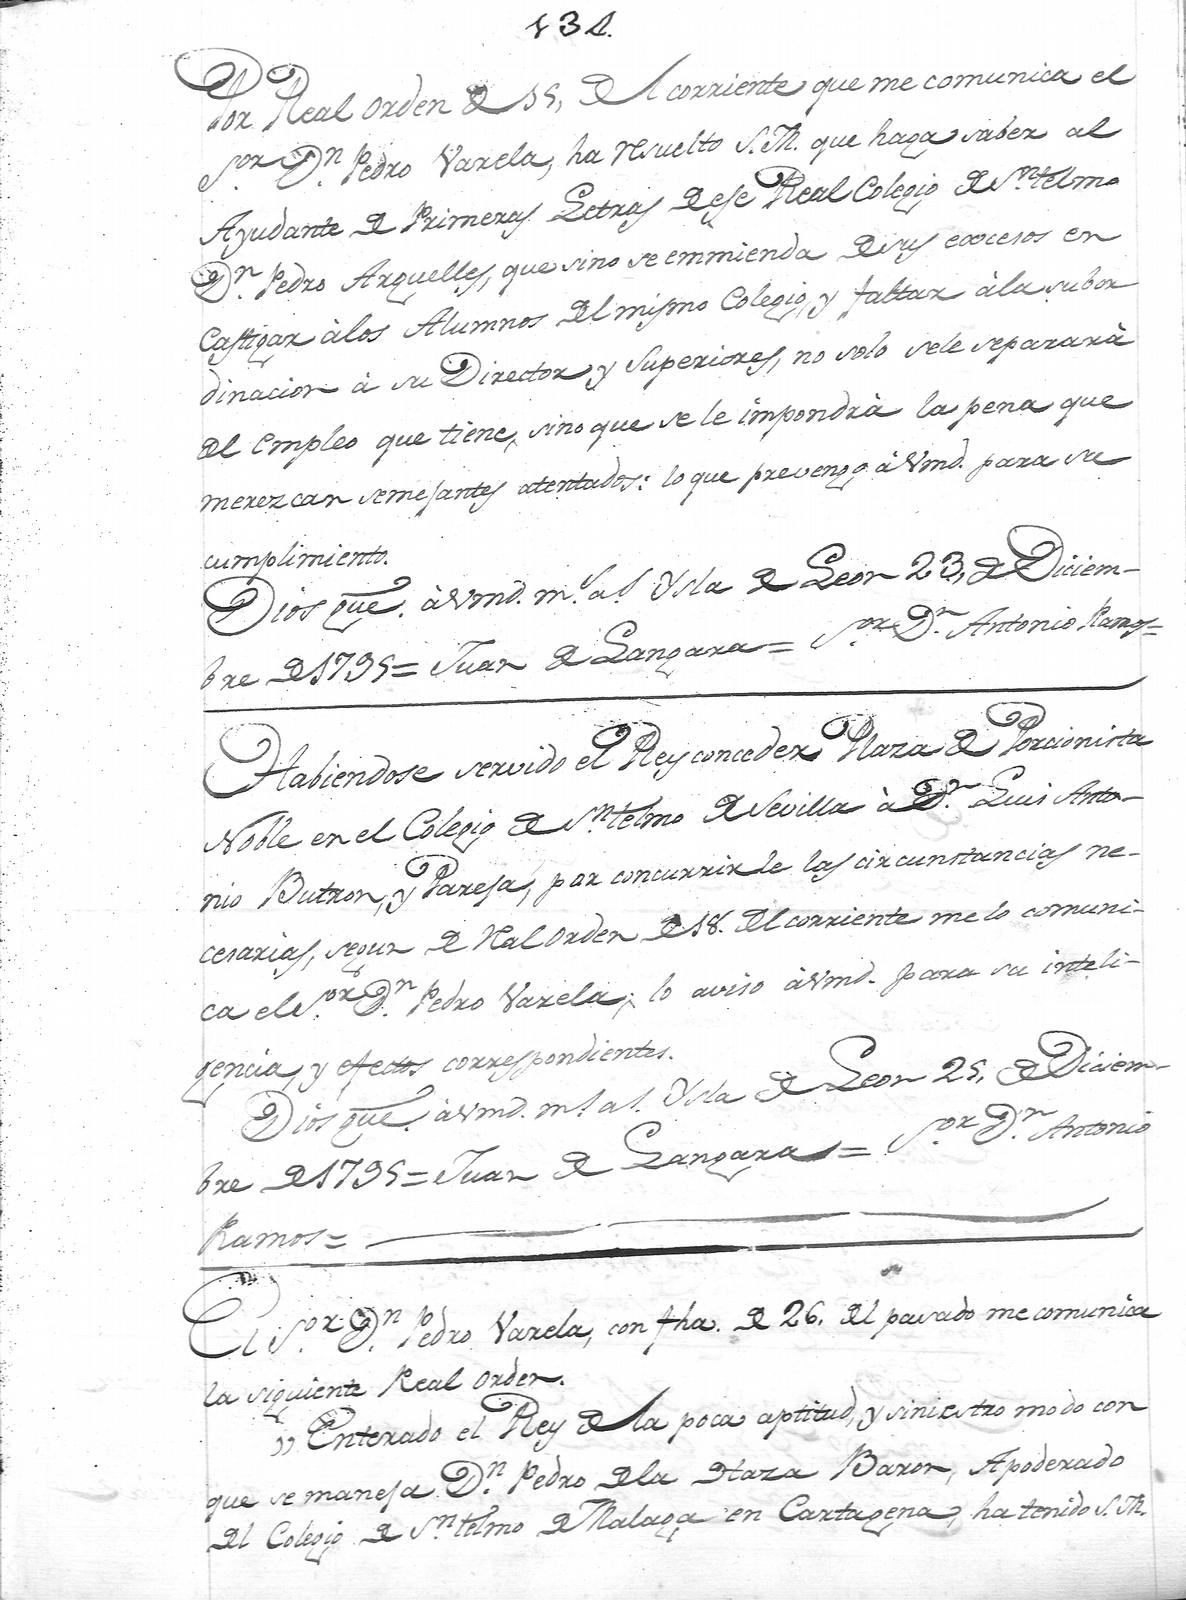 134.
Por Real Orden de 15, del corriente que me comunica el
S.or D.n Pedro Varela, ha resuelto S.M. que haga saber al
Ayudante de Primeras Letras de ese Real Colegio de S.n telmo
D.n Pedro Arguelles, que sino se emmienda de sus excesos en
Castigar à los Alumnos del mismo Colegio, y faltar à la subor
dinacion à su Director, y Superiores, no solo sele separarà
del Empleo que tiene, sino que se le impondrà la pena que
merezcan semejantes atentados: lo que prevengo à Vmd. para su
cumplimiento.
Dios gue. à Vmd. m.s a.s Ysla de Leon 23, de Diciem-
bre de 1795= Juan de Langara= S.or D.n Antonio Ramos=
Habiendose servido el Rey conceder Plaza de Porcionista
Noble en el Colegio de S.n telmo de Sevilla à D.n Luis Anto-
nio Butron, y Pareja, por concurrirle las circunstancias ne-
cesarias, segun de Ral Orden de 18. del corriente me lo comuni-
ca el S.or D.n Pedro Varela; lo aviso à Vmd. para su inteli-
gencia, y efectos correspondientes.
Dios gue. à Vmd. m.s a.s Ysla de Leon 25, de Diciem-
bre de 1795= Juan de Langara= S.or D.n Antonio
Ramos=
El S.or D.n Pedro Varela, con fha. de 26. del pasado me comunica
la siguiente Real Orden.
„ Enterado el Rey de la poca aptitud, y siniestro modo con
que se maneja D.n Pedro de la Haza Baron, Apoderado
del Colegio de S.n telmo de Malaga en Cartagena, ha tenido S.M.